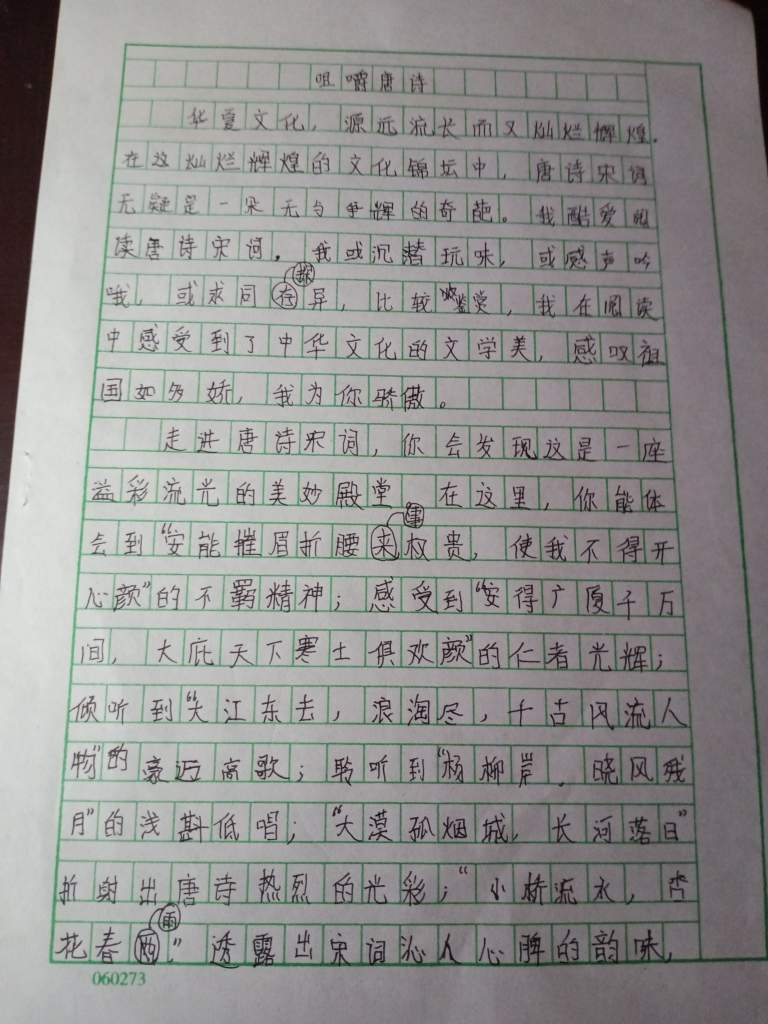 咀嚼唐诗
华夏文化，源远流长而又灿烂辉煌．
在这灿烂辉煌的文化锦坛中，唐诗宋词
无疑是一朵无与争辉的奇葩。我酷爱阅
读唐诗宋词．我或沉潜玩味，或感声吟
哦，或求同存异，比较鉴赏，我在阅读
中感受到了中华文化的文学美，感叹祖
国如多娇，我为你骄傲。
走进唐诗宋词，你会发现这是一座
溢彩流光的美妙殿堂 在这里，你能体
会到“安能摧眉折腰事权贵，使我不得开
心颜”的不羁精神；感受到“安得广厦千万
间，大庇天下寒士俱欢颜”的仁者光辉；
倾听到“大江东去，浪淘尽，千古风流人
物”的豪迈高歌；聆听到“杨柳岸．晓风残
月”的浅斟低唱；“大漠孤烟城，长河落日”
折射出唐诗热烈的光彩；“小桥流水，杏
花春雨”透露出宋词沁人心脾的韵味，
060273